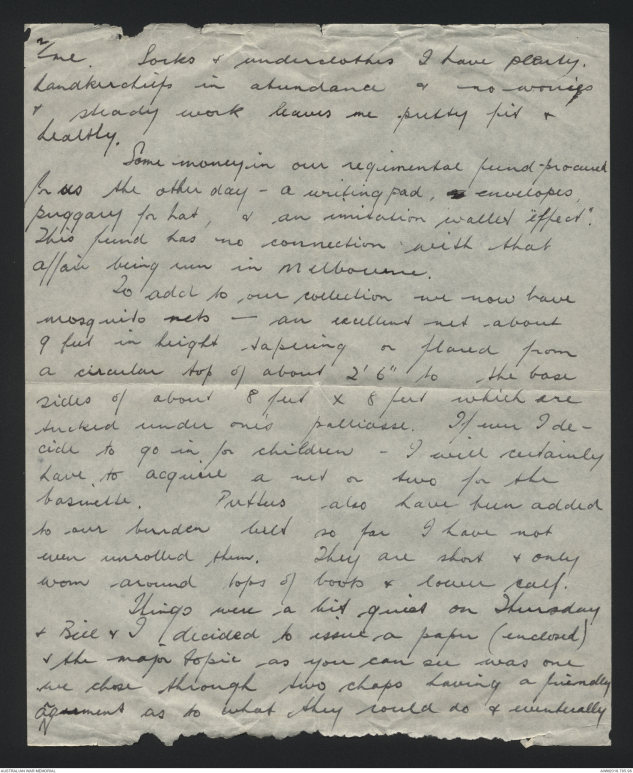 me. Socks & underclothes I have plenty.
handkerchiefs in abundance & no worries
& steady work leaves me pretty fit &
healthy.
Some money in our regimental fund procured
for us the other day – a writing pad, envelopes,
puggary for hat, & an imitation wallet effect".
This fund has no connection with that
affair being run in Melbourne.
To add to our collection we now have
mosquito nets — an excellent net about
9 feet in height tapering or flared from
a circular top of about 2' 6" to the base
sides of about 8 feet x 8 feet which are
tucked under one's palliasse. If ever I de-
cide to go in for children – I will certainly
have to acquire a net or two for the
basinette. Puttees also have been added
to our burden but so far I have not
even unrolled them. They are short & only
worn around tops of boots & lower calf.
Things were a bit quiet on Thursday
& Bill & I decided to issue a paper (enclosed)
& the major topic as you can see was one
we chose through two chaps having a friendly
as to what they could do & eventually
AUSTRALIAN WAR MEMORIAL